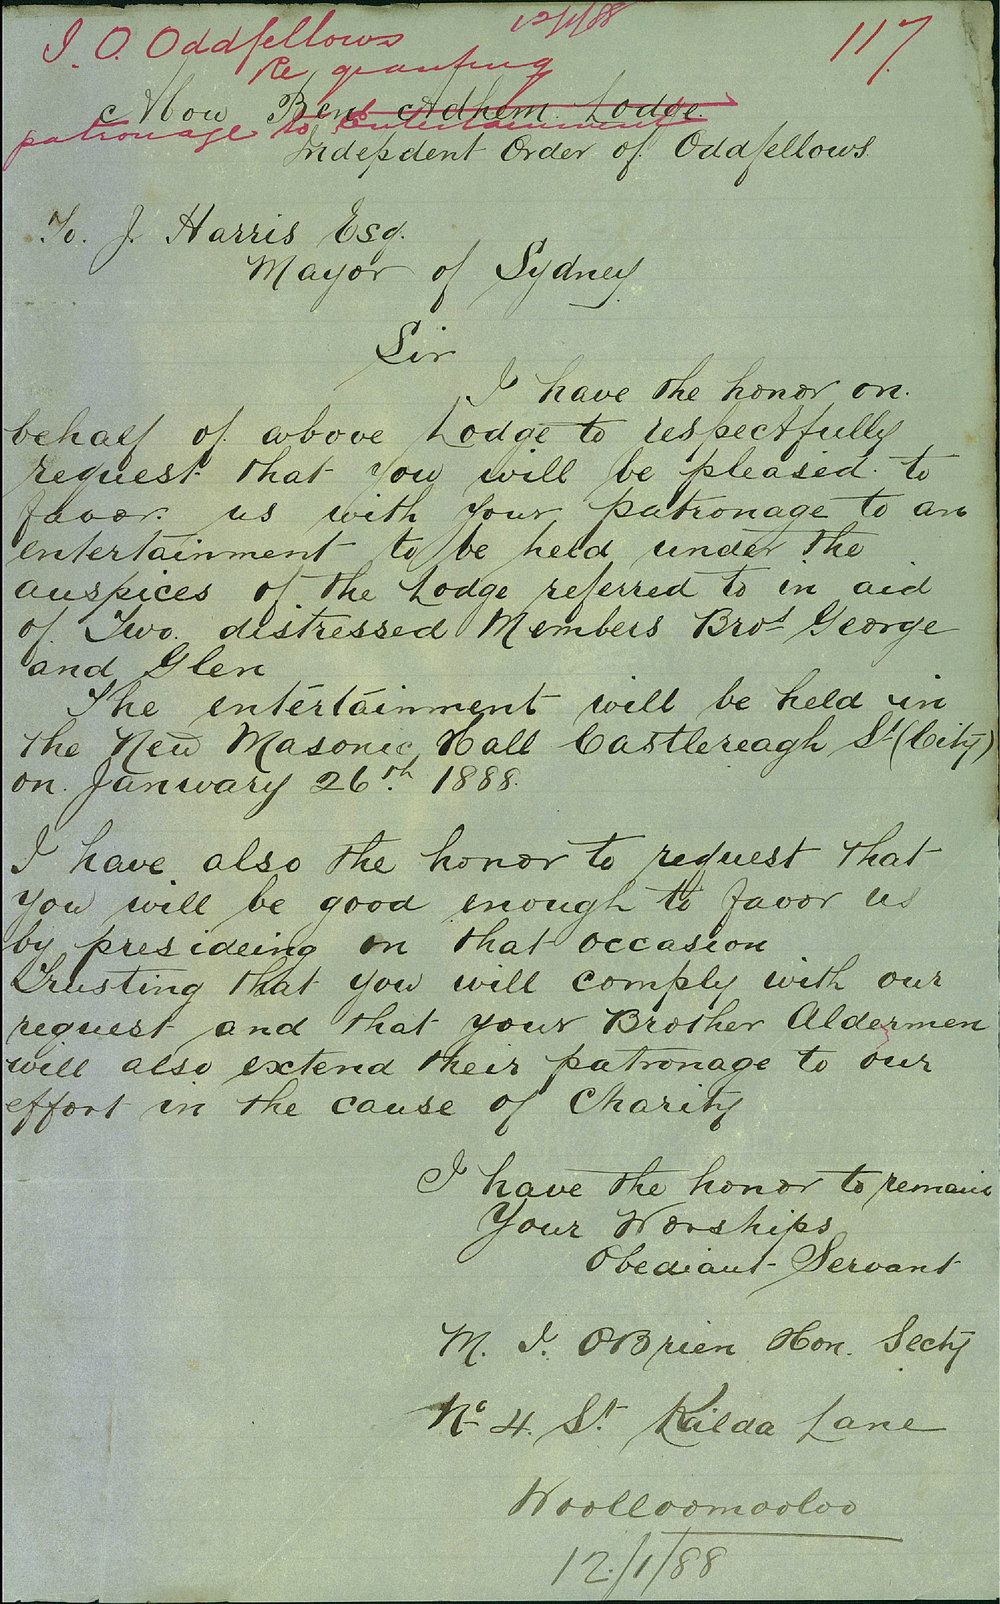 I. O. Oddfellows 12/1/88 117
Re granting
Abou Ben Adhem Lodge
patronage to Entertainment
Indepdent Order of Oddfellows
To. J. Harris Esq.
Mayor of Sydney
Sir
I have the honor on.
behalf of above Lodge to respectfully
request that you will be pleased to
favor. us with your patronage to an
entertainment to be held under the
auspices of the Lodge referred to in aid
of Two distressed Members Bros George
and Glen
The entertainment will be held in
the New Masonic Hall Castlereagh St (City)
on January 26th. 1888.
I have also the honor to request that
you will be good enough to favor us
by presideing on that occasion
Trusting that you will comply with our
request and that your Brother Aldermen
will also extend their patronage to our
effort in the cause of Charity
I have the honor to remain
Your Worships
Obediant Servant
M. J. OBrien Hon. Secty
No 4. St. Kilda Lane
Woolloomooloo
12/1/88